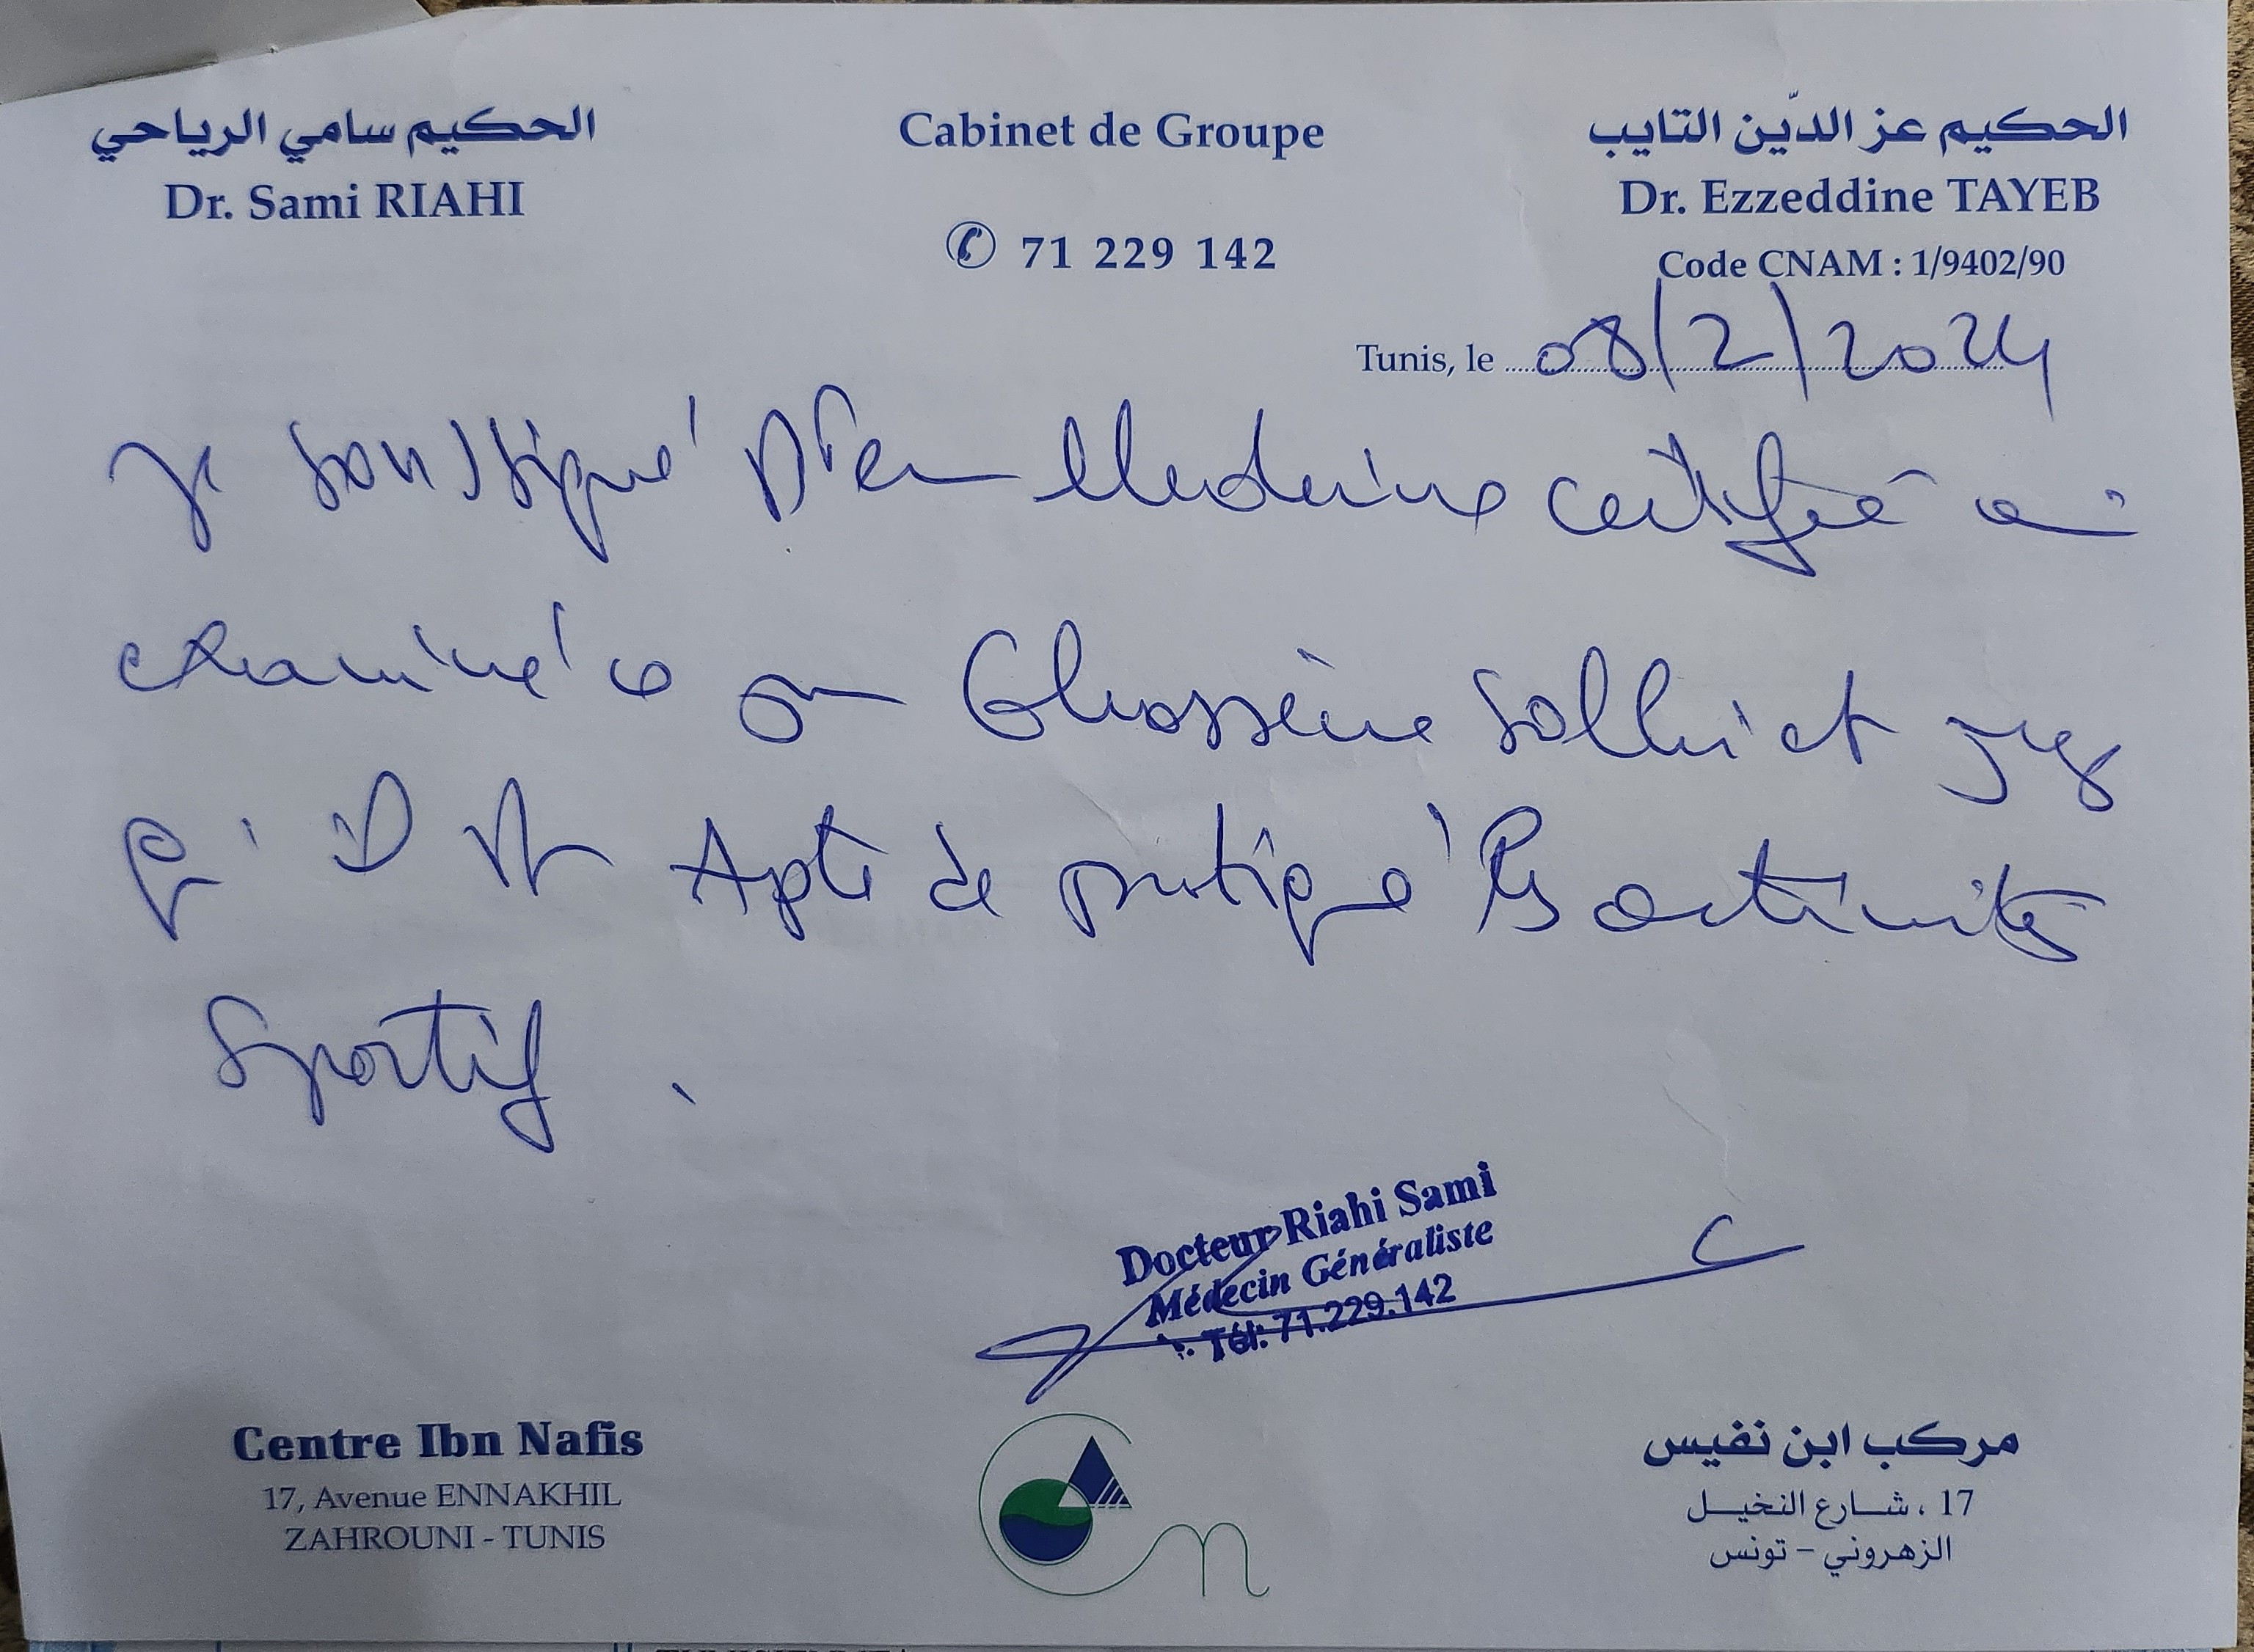 الحكيم سامي الرياحي
Dr. Sami RIAHI
Cabinet de Groupe
✆ 71 229 142
الحكيم عز الدّين التايب
Dr. Ezzeddine TAYEB
Code CNAM : 1/9402/90
Tunis, le 08/2/2024
Je soussigné Dr en Medecine certifié
examiné ce Ghassène Solhi et
qu'il est Apte de pratiqué les activités
Sportif.
Docteur Riahi Sami
Médecin Généraliste
Tél: 71.229.142
Centre Ibn Nafis
17, Avenue ENNAKHIL
ZAHROUNI - TUNIS
مركب ابن نفيس
17 ، شارع النخيل
الزهروني - تونس